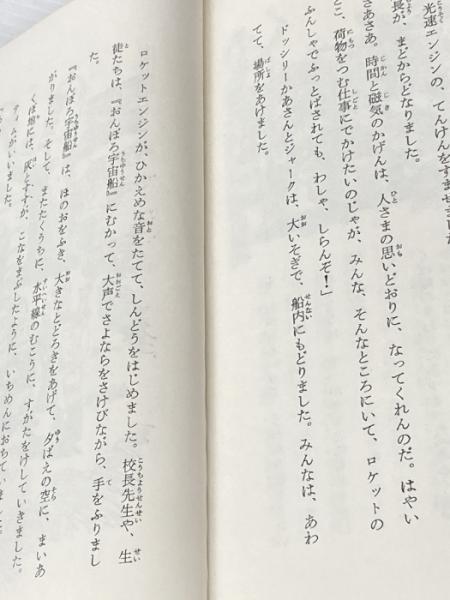 光速エンジンの、てんけんをすませました
長が、まどからどなりました。
さあさあ。時間と磁気のかげんは、人さまの思いどおりに、なってくれんのだ。はやい
とこ、荷物をつむ仕事にでかけたいのじゃが、みんな、そんなところにいて、ロケットの
ふんしゃでふっとばされても、わしゃ、しらんぞ！」
ドッシリーかあさんとジャークは、大いそぎで、船内にもどりました。みんなは、あわ
てて、場所をあけました。
ロケットエンジンが、ひかえめな音をたてて、しんどうをはじめました。校長先生や、生
徒たちは、『おんぼろ宇宙船』にむかって、大声でさよならをさけびながら、手をふりまし
た。
『おんぼろ宇宙船』は、ほのおをふき、大きなとどろきをあげて、夕ばえの空に、まいあ
がりました。そして、またたくうちに、水平線のむこうに、すがたをけしていきました。
には、灰とすすが、こなをまぶしたように、いちめんにおちていました。
ティムがいいました。